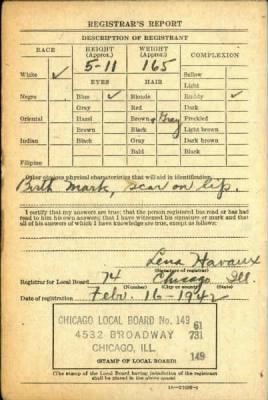 REGISTRAR'S REPORT
DESCRIPTION OF REGISTRANT
RACE HEIGHT (Approx.) WEIGHT (Approx.) COMPLEXION
White ✓ 5-11 165 Sallow
EYES HAIR Light
Negro Blue ✓ Blonde Ruddy ✓
Gray Red Dark
Oriental Hazel Brown & Gray Freckled
Brown Black Light brown
Indian Black Gray Dark brown
Bald Black
Filipino
Other obvious physical characteristics that will aid in identification
Birth Mark, Scar on lip.
I certify that my answers are true; that the person registered has read or has had
read to him his own answers; that I have witnessed his signature or mark and that
all of his answers of which I have knowledge are true, except as follows:
Lena Havaux
(Signature of registrar)
Registrar for Local Board 74 Chicago Ill.
(Number) (City or county)
Date of registration Feb. 16-1942
CHICAGO LOCAL BOARD No. 149 61
4532 BROADWAY 731
CHICAGO, ILL. 149
(STAMP OF LOCAL BOARD)
(The stamp of the Local Board having jurisdiction of the registrant
shall be placed in the above space)